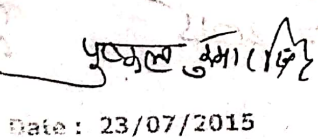 पुष्कल कुमार सिंह
Date: 23/07/2015